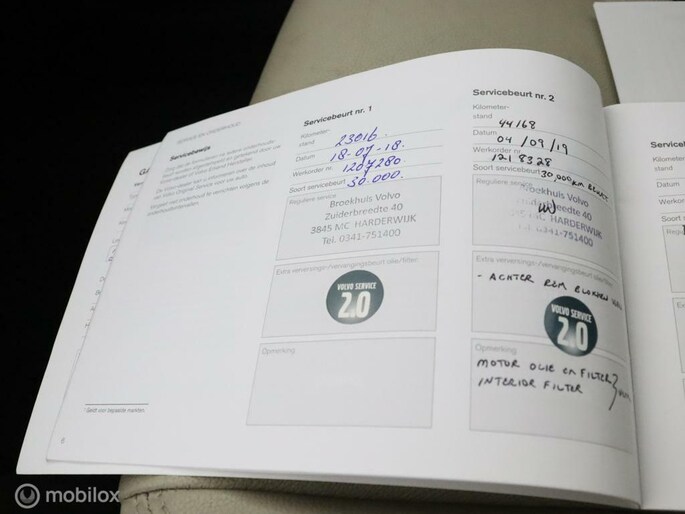 SERVICE EN ONDERHOUD
Servicebewijs
Volvo Original Service van uw auto.
¹ Geldt voor bepaalde markten.
6
Servicebeurt nr. 1
Kilometer-
stand 23016
Datum 18-07-18.
Werkorder nr. 1207280
Soort servicebeurt 30.000.
Reguliere service
Broekhuis Volvo
Zuiderbreedte 40
3845 MC HARDERWIJK
Tel. 0341-751400
Extra verversings-/vervangingsbeurt olie/filter
VOLVO SERVICE
2.0
Opmerking
Servicebeurt nr. 2
Kilometer-
stand 44168
Datum 04/09/19
Werkorder nr. 1218328
Soort servicebeurt 30,000 KM BEURT
Reguliere service
Broekhuis Volvo
Zuiderbreedte 40
3845 MC HARDERWIJK
Tel. 0341-751400
Extra verversings-/vervangingsbeurt olie/filter
- ACHTER REM BLOKKEN
VOLVO SERVICE
2.0
Opmerking
MOTOR OLIE EN FILTER
INTERIOR FILTER
Service
Kilometer-
stand
Datum
Werkorder
Soort
mobilox